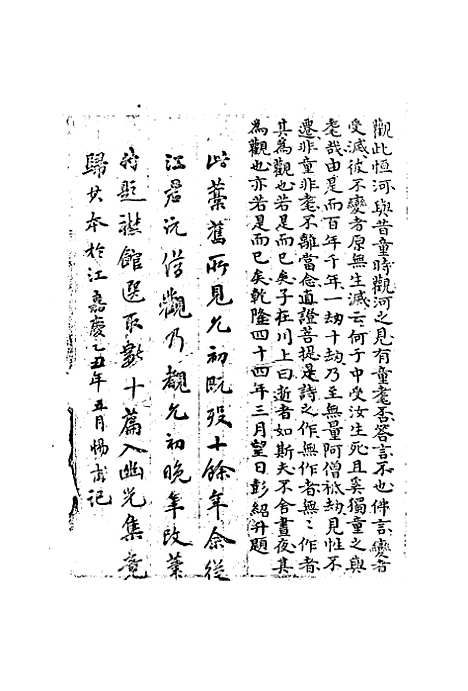 觀此恒河與昔童時觀河之見有童耄否答言不也佛言變者
受滅彼不變者原無生滅云何于中受汝生死且奚獨童之與
耄哉由是而百年千年一劫十劫乃至無量阿僧祇劫見性不
遷非童非耄不離當念道證菩提是詩之作無作者無無作者
其為觀也若是而已矣子在川上曰逝者如斯夫不舍晝夜其
為觀也亦若是而已矣乾隆四十四年三月望日彭紹升題
此藁舊所見允初既歿十餘年余從
江君沅借觀乃觀允初晚年改葉
題禪館選取數十篇入幽光集竟
歸其本於江嘉慶乙丑年五月惕甫記